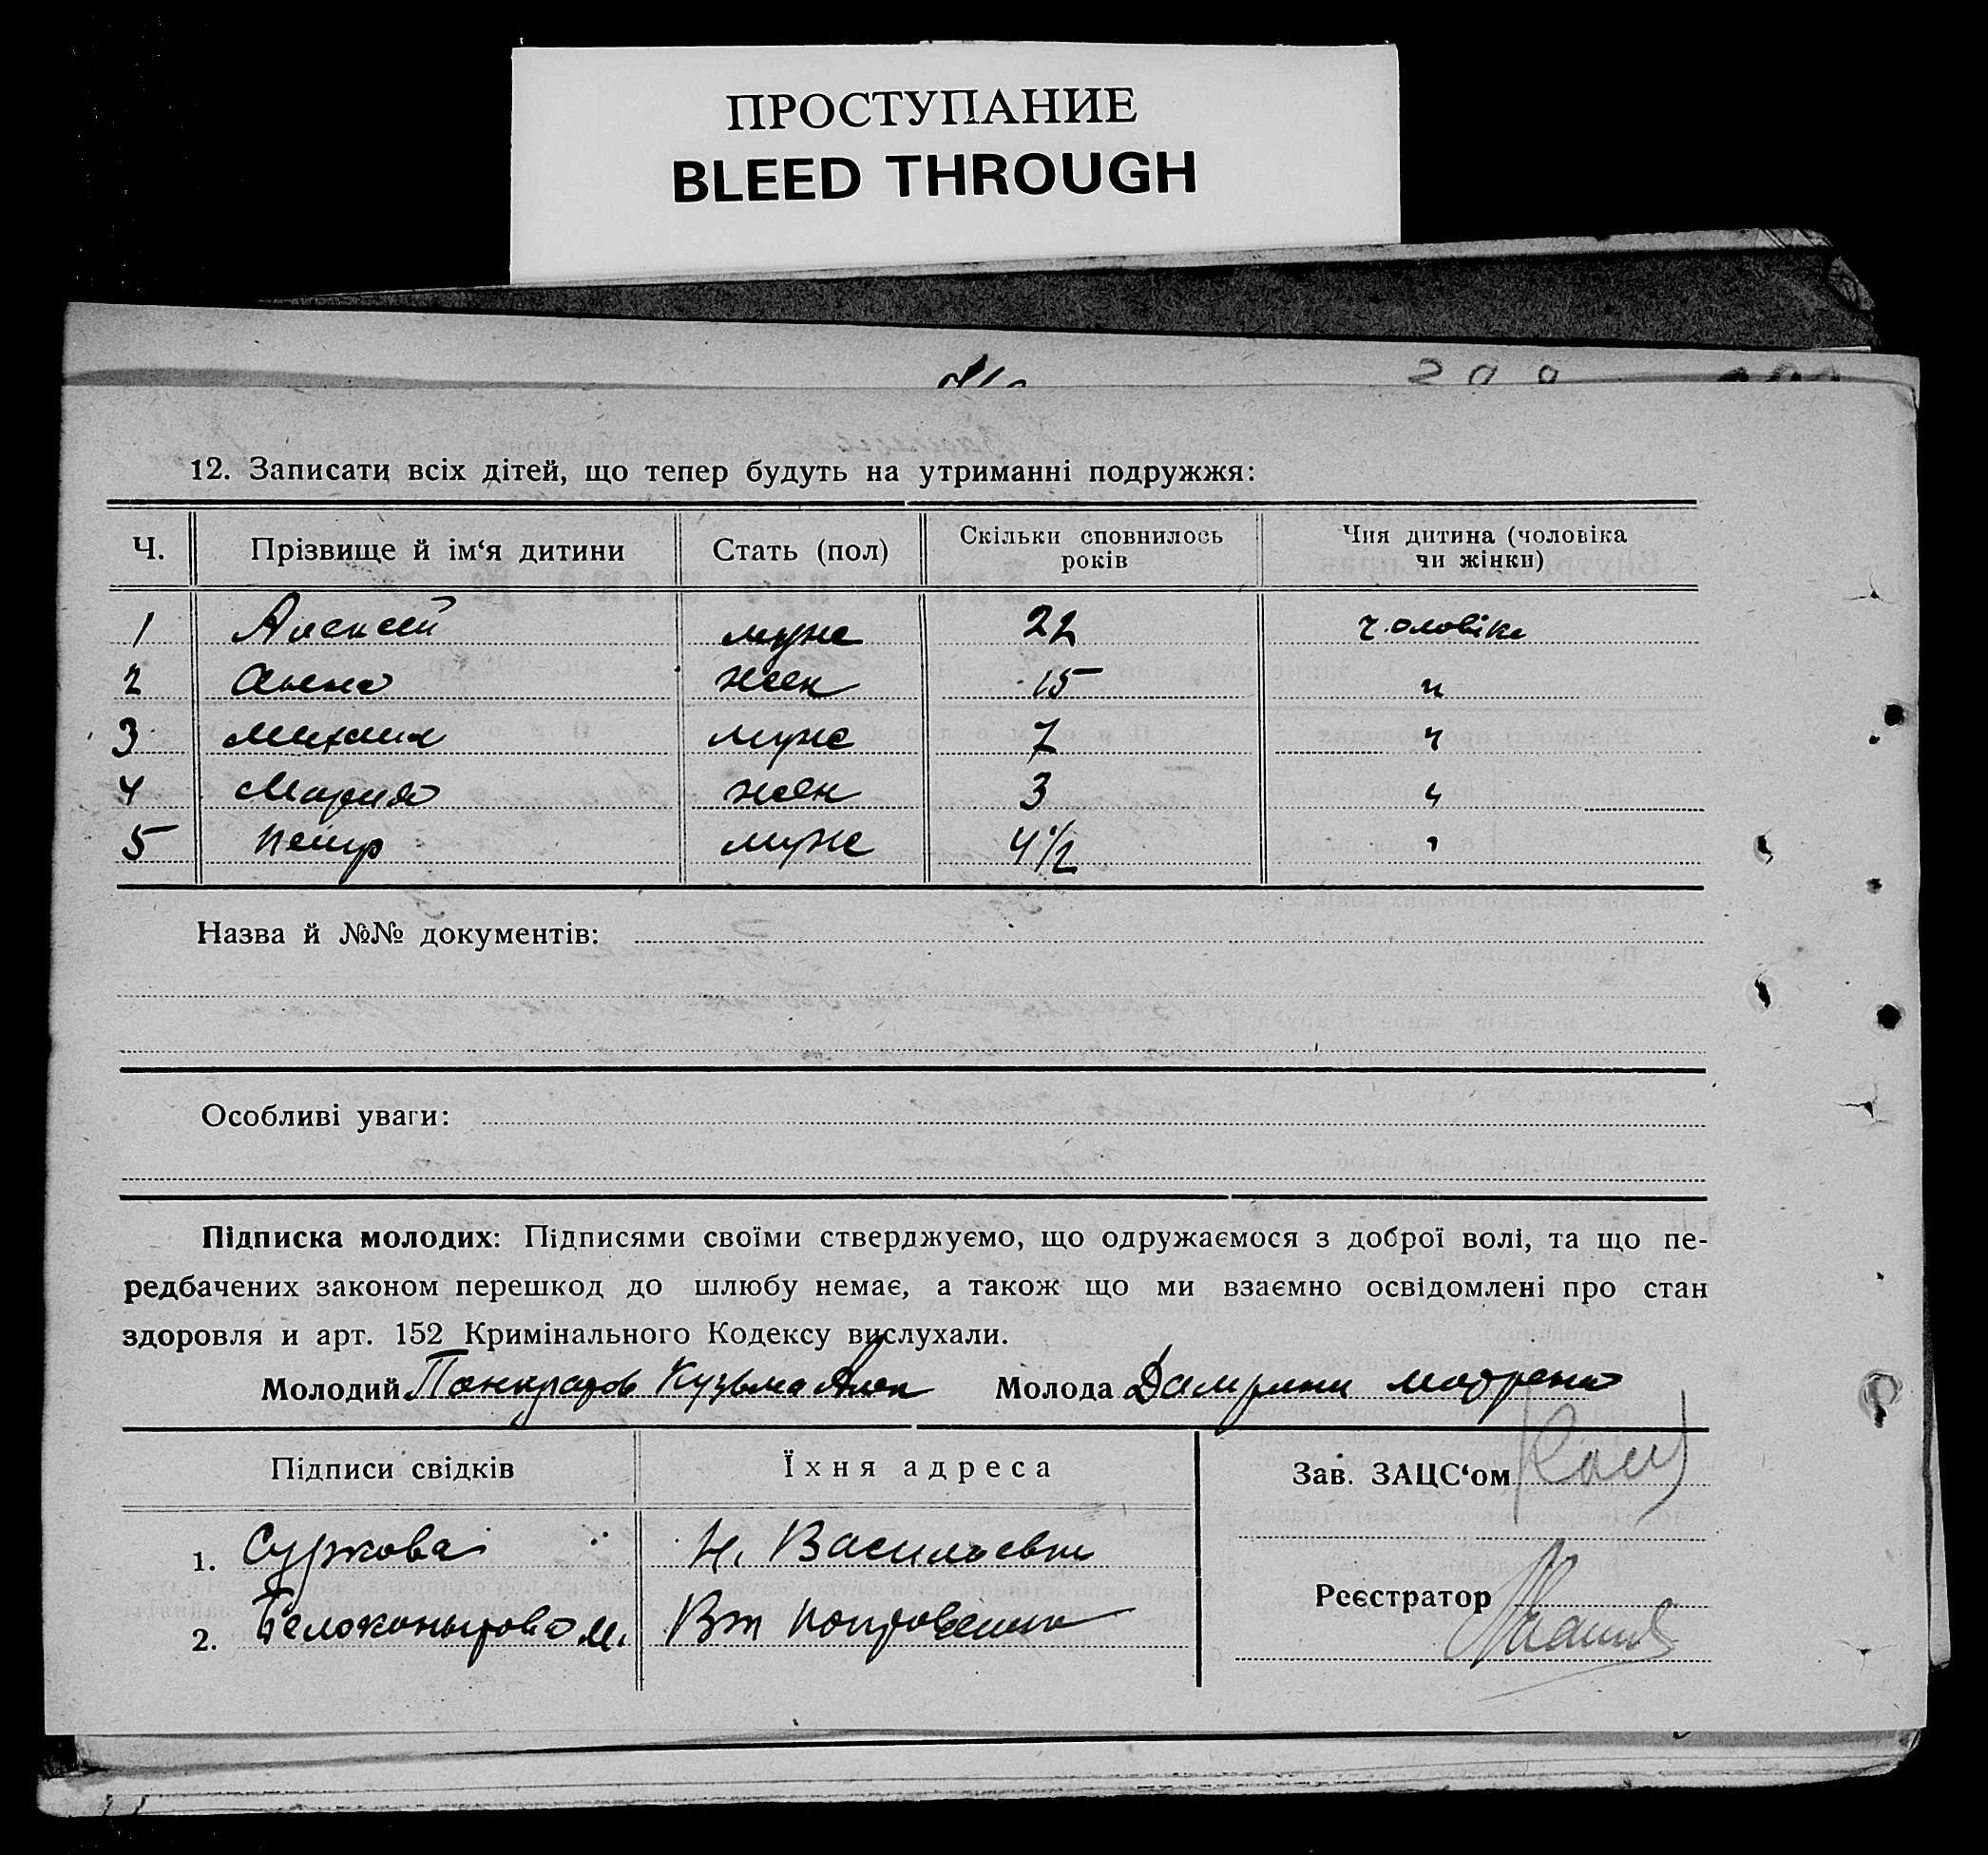 ПРОСТУПАНИЕ
BLEED THROUGH
12. Записати всіх дітей, що тепер будуть на утриманні подружжя:
Ч. Прізвище й ім‘я дитини Стать (пол) Скільки сповнилось років Чия дитина (чоловіка чи жінки)
1 Алексей муж 22 чоловіка
2 Анна жен 15 "
3 Михаил муж 7 "
4 Мария жен 3 "
5 Петр муж 4 1/2 "
Назва й №№ документів:
Особливі уваги:
Підписка молодих: Підписями своїми стверджуємо, що одружаємося з доброї волі, та що пе-
редбачених законом перешкод до шлюбу немає, а також що ми взаємно освідомлені про стан
здоровля и арт. 152 Кримінального Кодексу вислухали.
Молодий Панкратов Кузьма Молода Матрена
Підписи свідків Їхня адреса Зав. ЗАЦС‘ом
1. Суркова Н. Васильевка
Реєстратор
2. Белокопытова М.